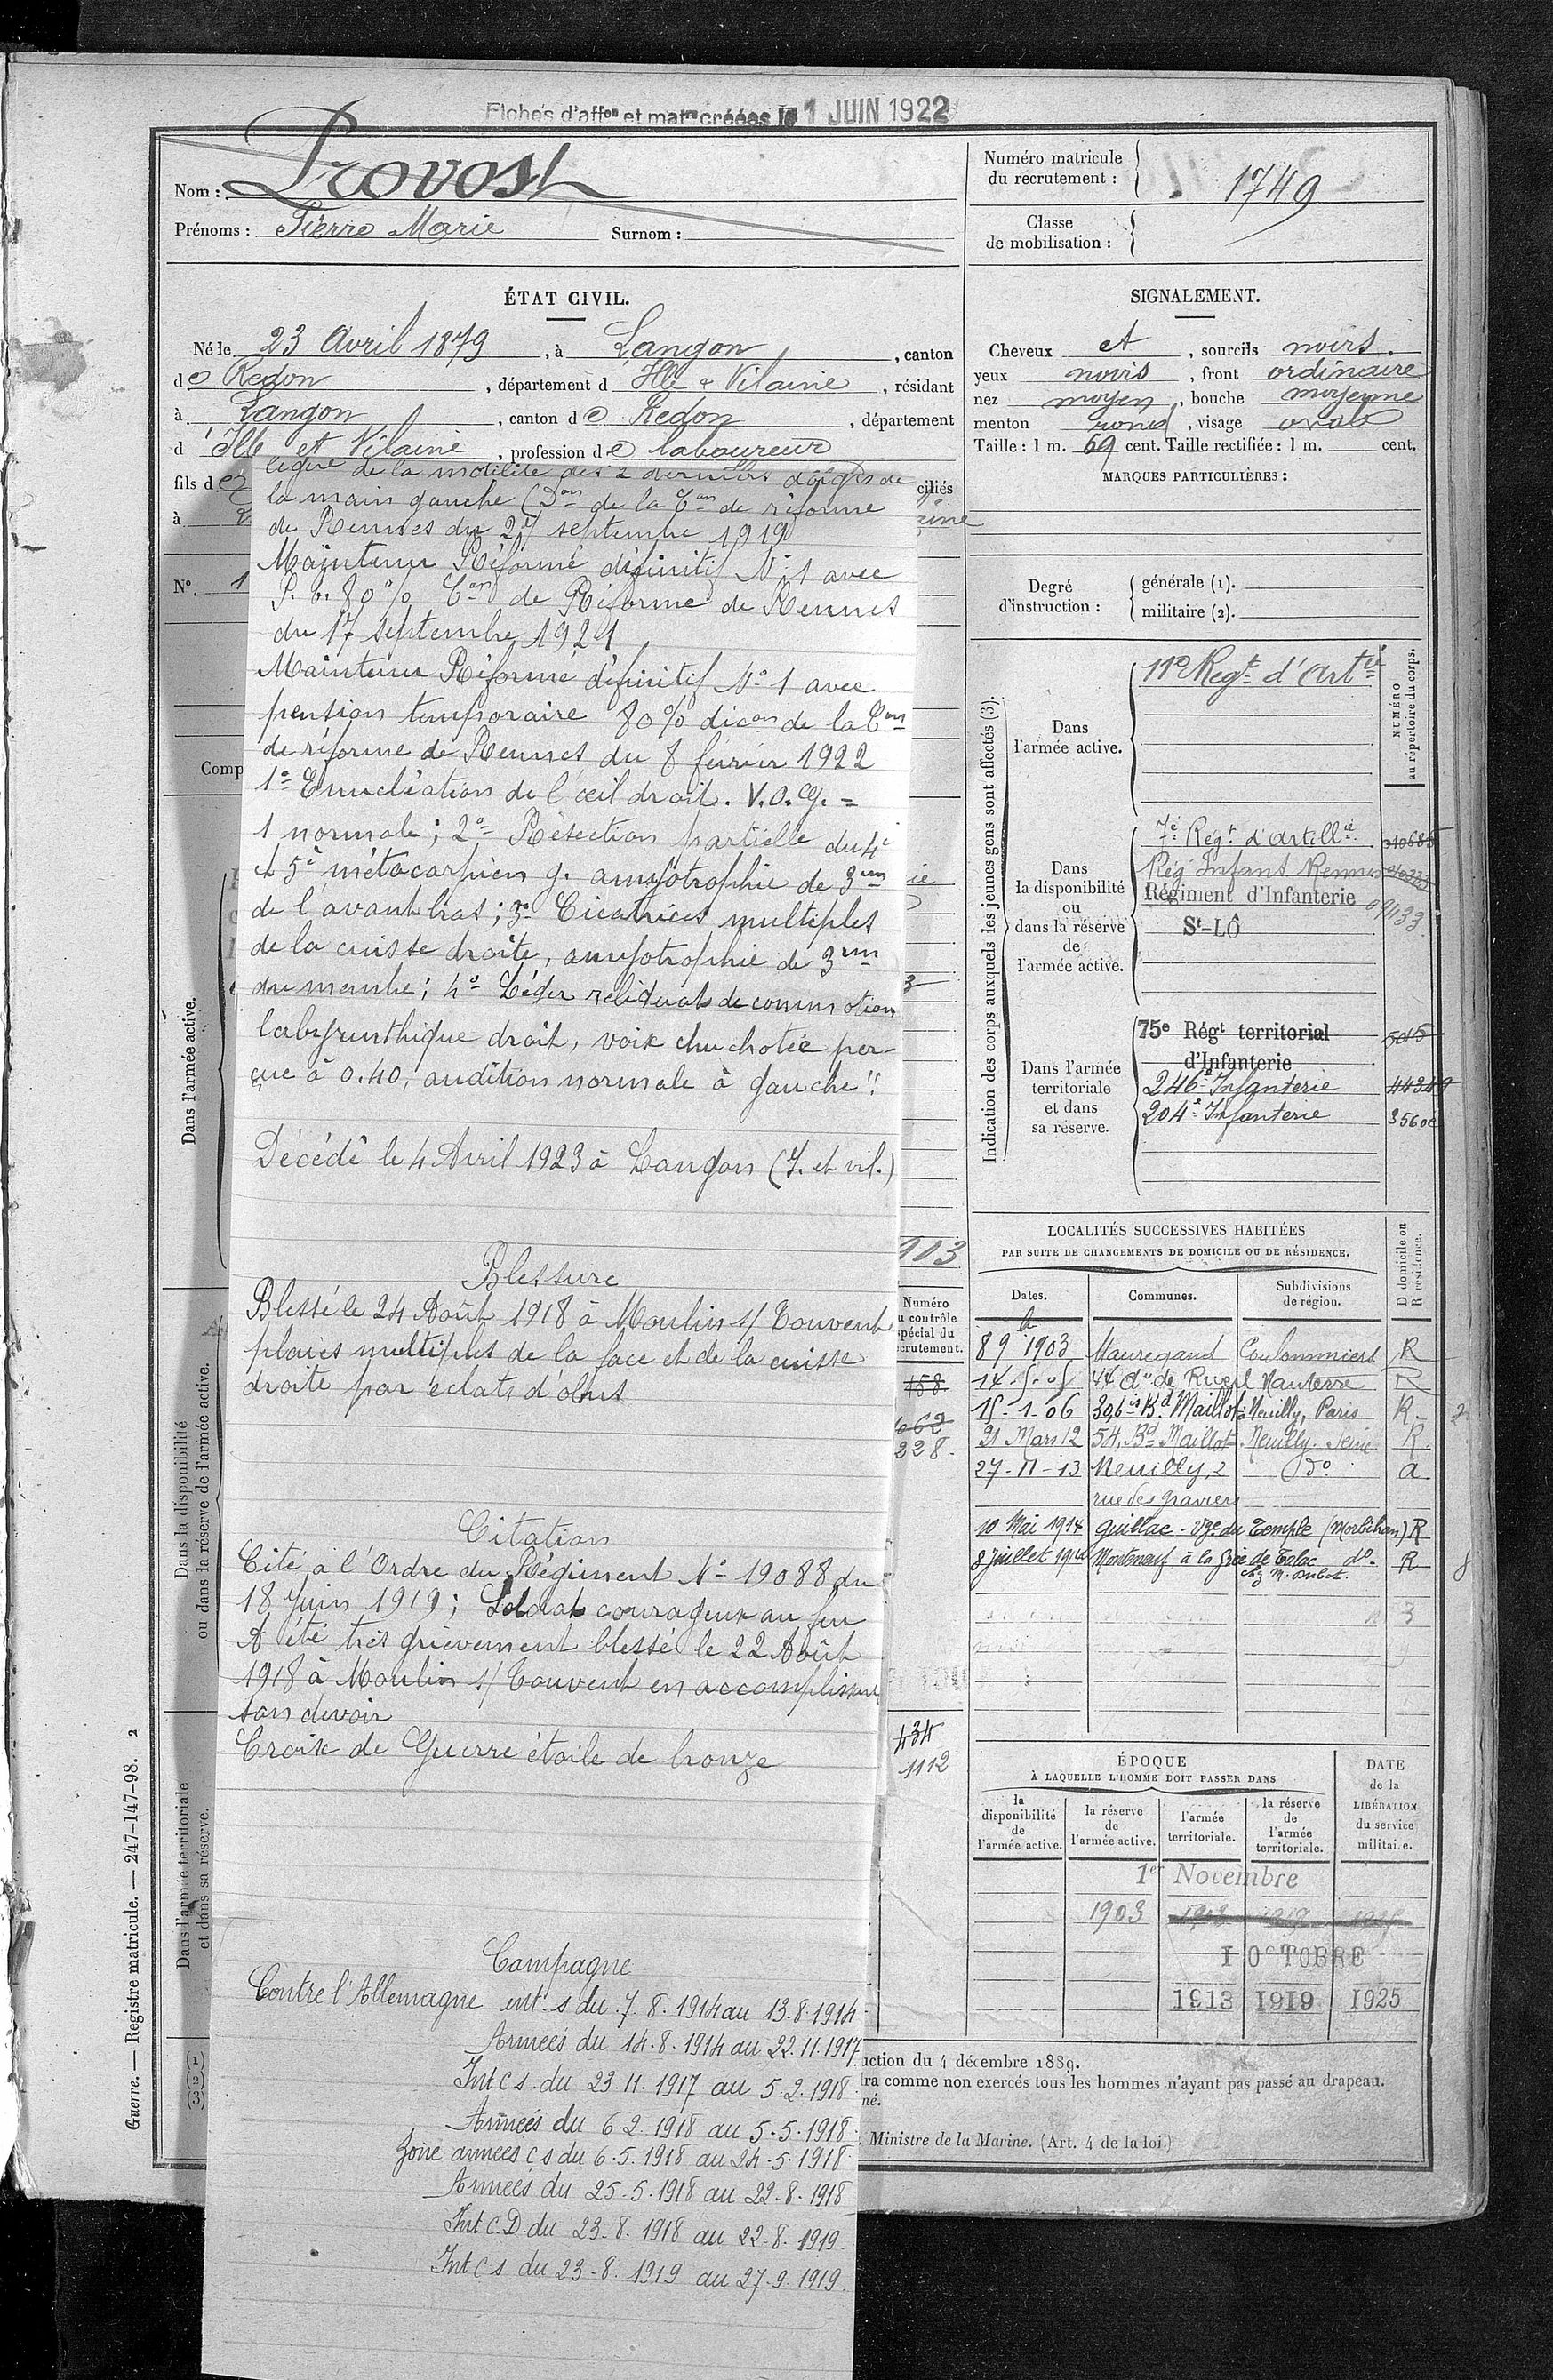 Fiches d'affon et matre créées le 1 JUIN 1922
Nom : Provost
Prénoms : Pierre Marie Surnom :
Numéro matricule
du recrutement : 1749
Classe
de mobilisation :
ÉTAT CIVIL.
Né le 23 Avril 1879, à Langon, canton
de Redon, département d Ille & Vilaine, résidant
à Langon, canton de Redon, département
d'Ille et Vilaine, profession de laboureur
fils d
ciliés
à
N°. 1
Comp
légère de la motilité des 2 derniers doigts de
la main gauche (Don de la Con de réforme
de Rennes du 27 septembre 1919
Maintenu Réformé définitif N° 1 avec
P. t. 80 % Con de Réforme de Rennes
du 17 septembre 1921
Maintenu Réformé définitif N° 1 avec
pension temporaire 80 % dicon de la Con
de réforme de Rennes du 8 février 1922
1° Enucléation de l'œil droit. V.O.G. =
1 normale ; 2° Résection partielle du 4e
et 5e métacarpien g. amyotrophie de 3 cm
de l'avant bras ; 3° Cicatrices multiples
de la cuisse droite, amyotrophie de 3 cm
du membre ; 4° Léger reliquats de commotion
labyrinthique droit, voix chuchotée per-
çue à 0.40, audition normale à gauche"
Décédé le 4 Avril 1923 à Langon (I. et vil.)
Blessure
Blessé le 24 Août 1918 à Moulin s/ Touvent
plaies multiples de la face et de la cuisse
droite par éclats d'obus
Citation
Cité à l'Ordre du Régiment N° 19088 du
18 Juin 1919 ; Soldat courageux au feu
A été très grièvement blessé le 22 Août
1918 à Moulin s/ Touvent en accomplissant
son devoir
Croix de Guerre étoile de bronze
Campagne
Contre l'Allemagne int. s du 7.8.1914 au 13.8.1914
Armées du 14.8.1914 au 22.11.1917
Int C s du 23.11.1917 au 5.2.1918
Armées du 6.2.1918 au 5.5.1918
Zone armées c s du 6.5.1918 au 24.5.1918
Armées du 25.5.1918 au 22.8.1918
Int C.D. du 23.8.1918 au 22.8.1919
Int C s du 23.8.1919 au 27.9.1919
Dans l'armée active.
Dans la disponibilité
ou dans la réserve de l'armée active.
Dans l'armée territoriale
et dans sa réserve.
(1)
(2)
(3)
Guerre. — Registre matricule. — 247-147-98. 2
103
Numéro
u contrôle
spécial du
crutement.
158
062
228.
434
1112
SIGNALEMENT.
Cheveux et, sourcils noirs.
yeux noirs, front ordinaire
nez moyen, bouche moyenne
menton rond, visage ovale
Taille : 1 m. 69 cent. Taille rectifiée : 1 m. cent.
MARQUES PARTICULIÈRES :
Degré
d'instruction :
générale (1).
militaire (2).
Indication des corps auxquels les jeunes gens sont affectés (3).
NUMÉRO
au répertoire du corps.
Dans
l'armée active.
11e Regt d'Artie
Dans
la disponibilité
ou
dans la réserve
de
l'armée active.
7e Régt d'Artillie
Rég Infant Rennes
Régiment d'Infanterie 09433
St-LÔ
Dans l'armée
territoriale
et dans
sa réserve.
75e Régt territorial
d'Infanterie 5015
246e Infanterie 44349
204e Infanterie
LOCALITÉS SUCCESSIVES HABITÉES
PAR SUITE DE CHANGEMENTS DE DOMICILE OU DE RÉSIDENCE.
D domicile ou
R résidence.
Dates. Communes. Subdivisions
de région.
8 9bre 1903 Mauregard Coulommiers R
14-5-05 44 Av de Rueil Nanterre R
15-1-06 39 bis Bd Maillot à Neuilly, Paris R. 2
21 Mars 12 54, Bd Maillot Neuilly. Seine R.
27-11-13 Neuilly, 2 do a
rue des graviers
10 Mai 1914 Guillac - Vge du Temple (Morbihan) R
8 Juillet 1914 Monteneuf à la gare de Talac do R 8
chez M.
3
ÉPOQUE
À LAQUELLE L'HOMME DOIT PASSER DANS
DATE
de la
LIBÉRATION
du service
militaire.
la
disponibilité
de
l'armée active.
la réserve
de
l'armée active.
l'armée
territoriale.
la réserve
de
l'armée
territoriale.
1er Novembre
1903 1913 1919
1 OCTOBRE
1913 1919 1925
uction du 4 décembre 1889.
ra comme non exercés tous les hommes n'ayant pas passé au drapeau.
né.
Ministre de la Marine. (Art. 4 de la loi.)